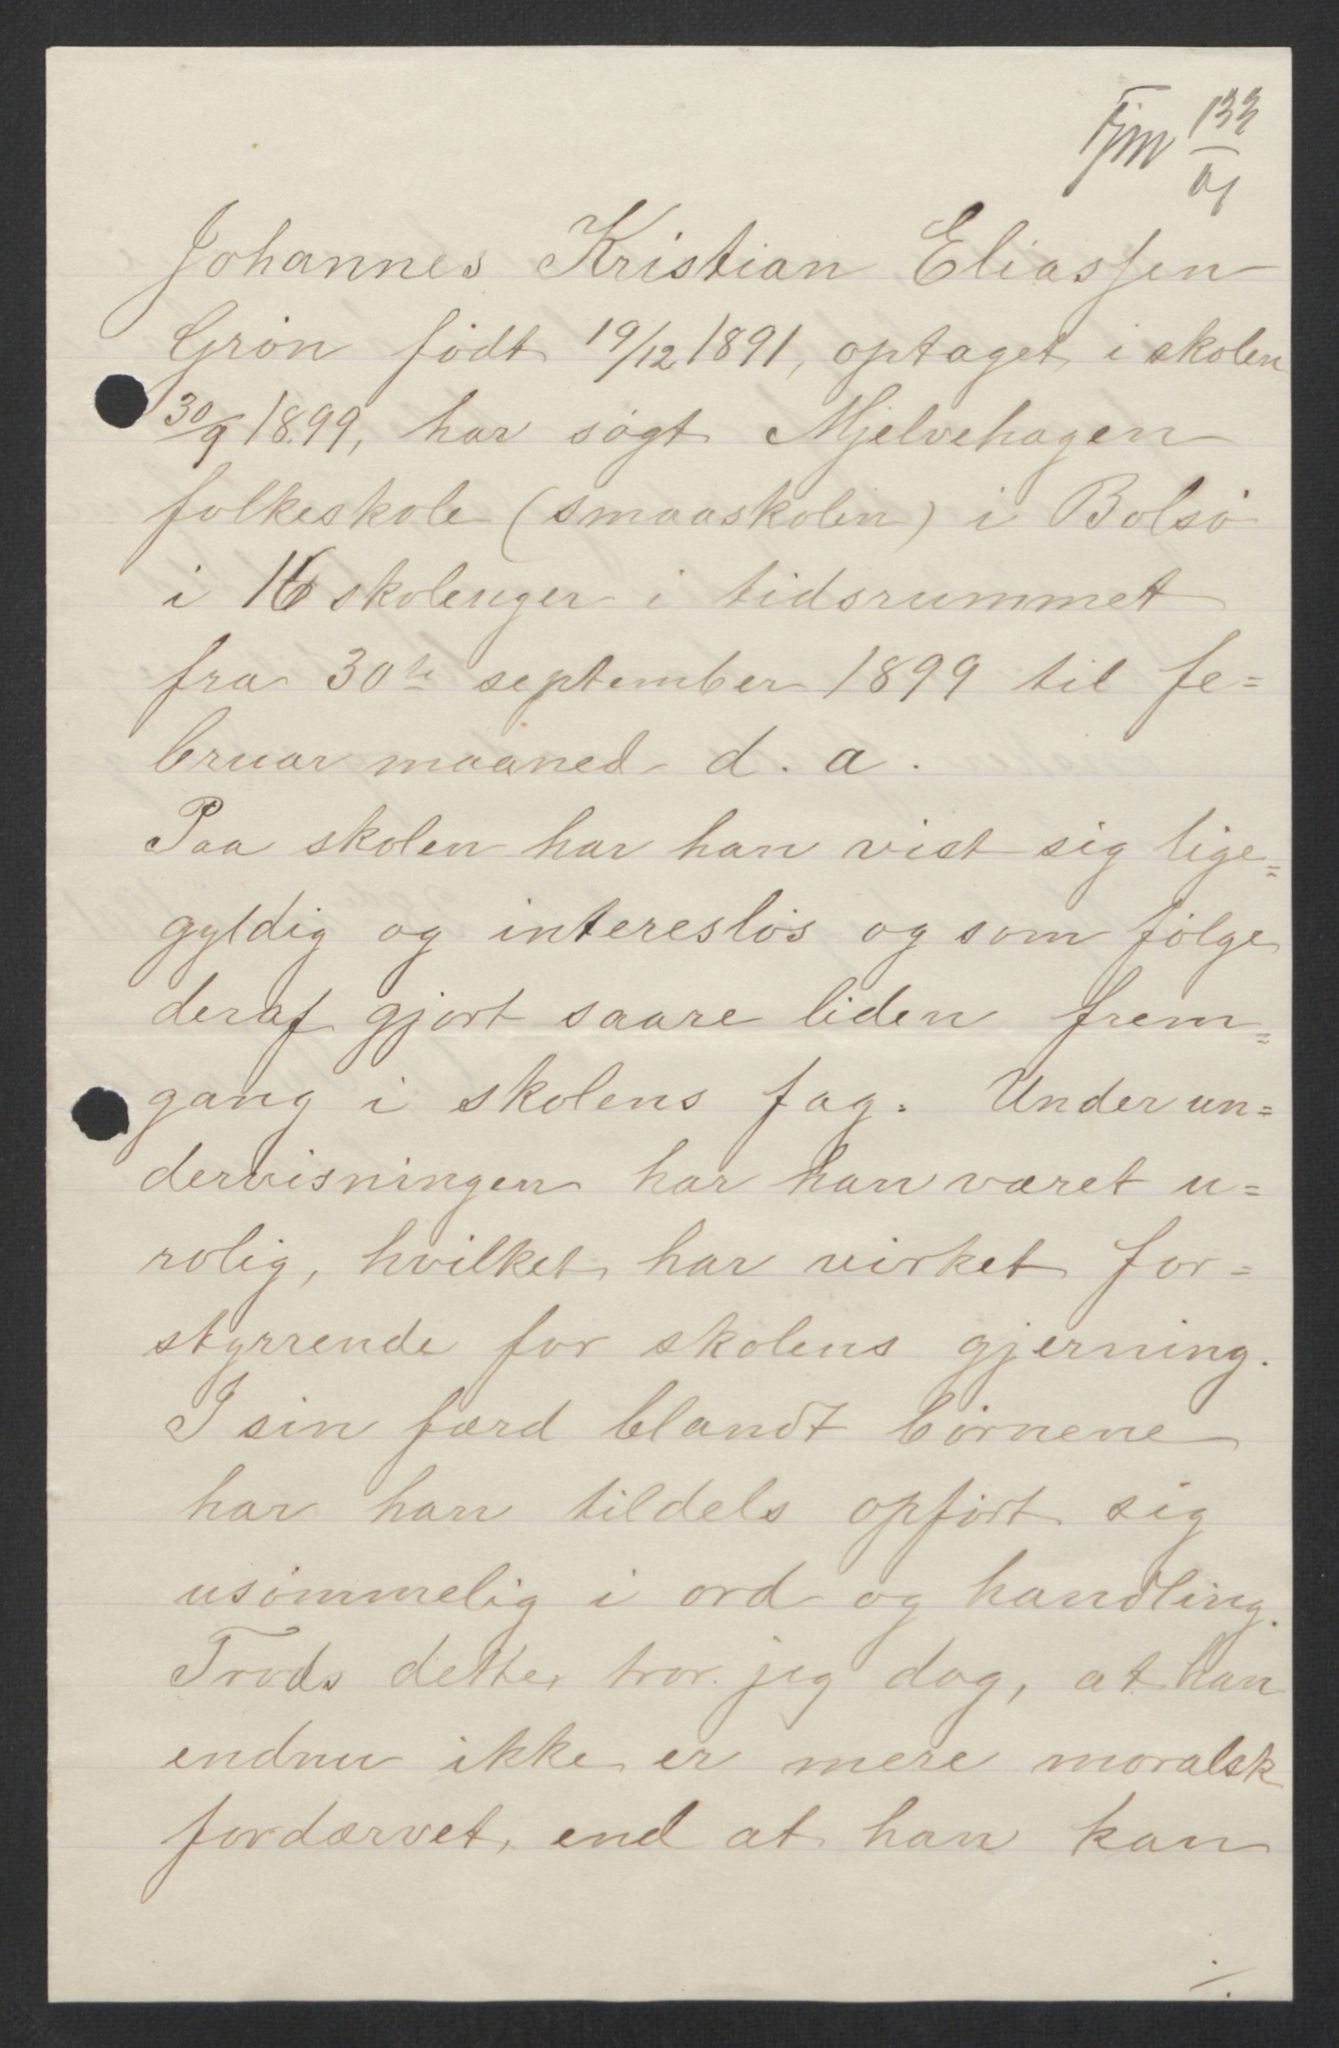 133
01
Johannes Kristian Eliassen
Grön födt 19/12 1891, optaget i skolen
30/9 1899, har sögt Mjelvehagen
folkeskole (smaaskolen) i Bolsö
i 16 skoleuger i tidsrummet
fra 30te september 1899 til fe=
bruar maaned d. a.
Paa skolen har han vist sig lige=
gyldig og interesløs og som fölge
deraf gjort saare liden frem=
gang i skolens fag. Under un=
dervisningen har han været u=
rolig, hvilket har virket for=
styrrende for skolens gjerning.
I sin færd blandt börnene
har han tildels opfört sig
usömmelig i ord og handling.
Trods dette tror jeg dog, at han
endnu ikke er mere moralsk
fordærvet, end at han kan
./.